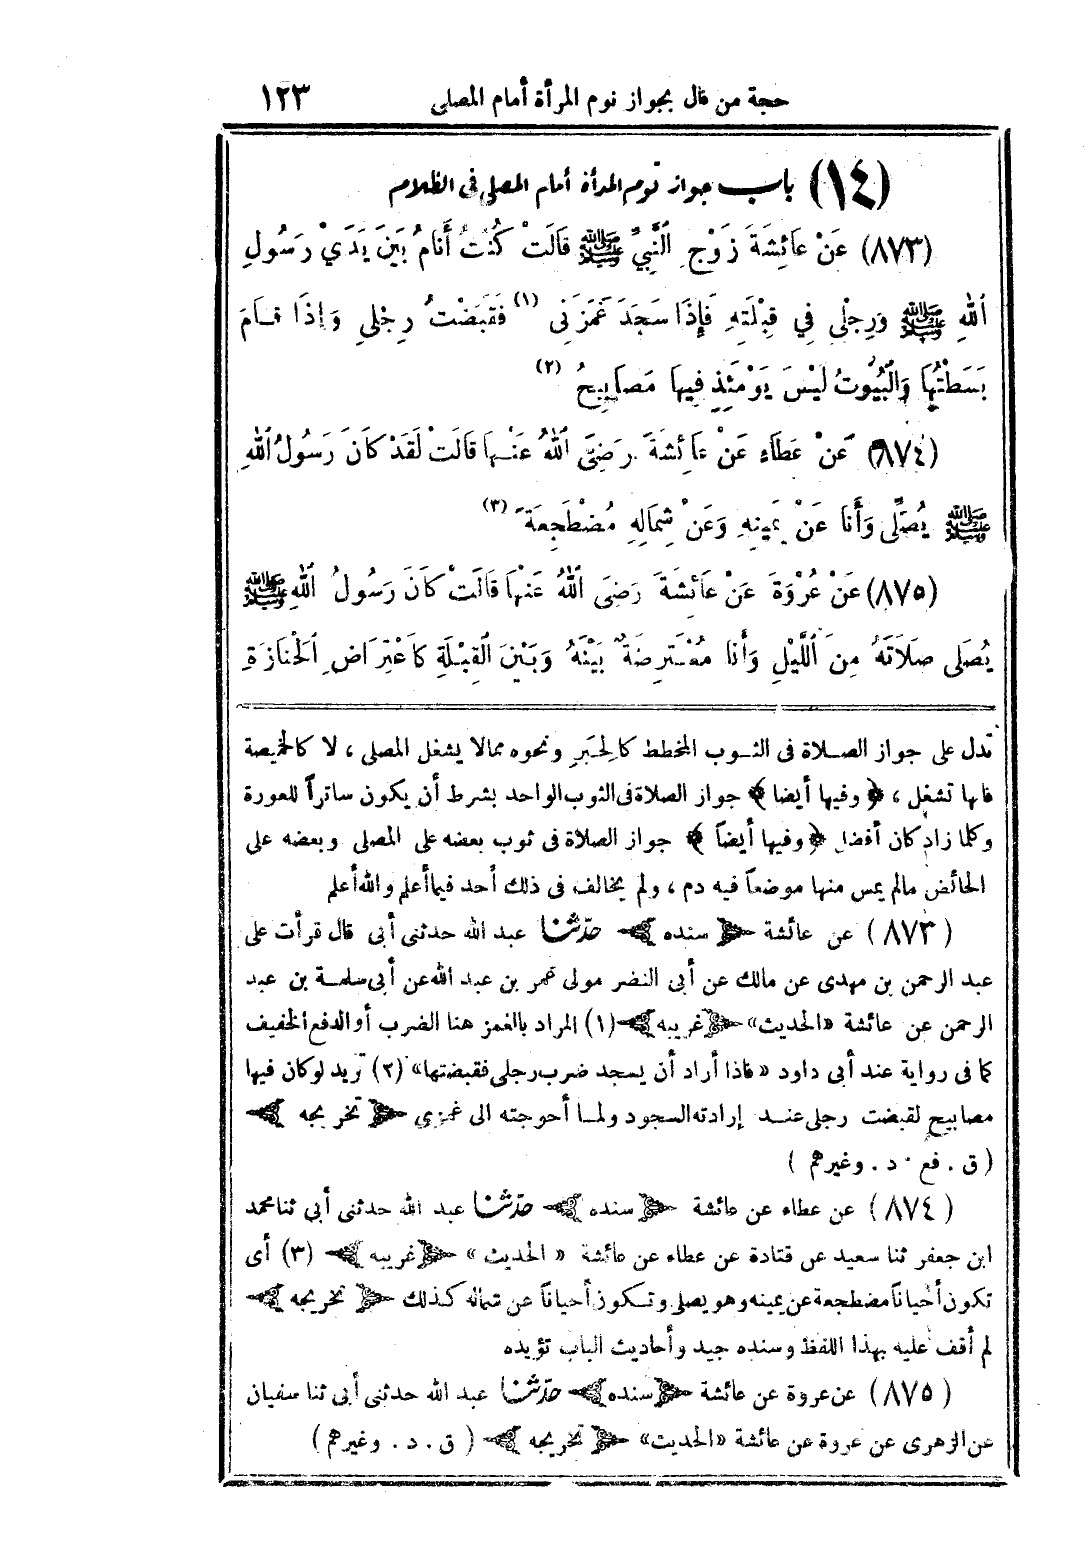 حجة من قال بجواز نوم المرأة أمام المصلى ١٢٣
(١٤) باب جواز نوم المرأة أمام المصلى فى الظلام
(٨٧٣) عَنْ عَائِشَةَ زَوْجِ النَّبِيِّ ﷺ قَالَتْ كُنْتُ أَنَامُ بَيْنَ يَدَيْ رَسُولِ
اللهِ ﷺ وَرِجْلِي فِي قِبْلَتِهِ فَإِذَا سَجَدَ غَمَزَنِى (١) فَقَبَضْتُ رِجْلِى وَإِذَا قَامَ
بَسَطْتُهَا وَالْبُيُوتُ لَيْسَ يَوْمَئِذٍ فِيهَا مَصَابِيحُ (٢)
(٨٧٤) عَنْ عَطَاءِ عَنْ عَائِشَةَ رَضِىَ اللهُ عَنْهَا قَالَتْ لَقَدْ كَانَ رَسُولُ اللهِ
ﷺ يُصَلِّى وَأَنَا عَنْ يَمِينِهِ وَعَنْ شِمَالِهِ مُضْطَجِعَةً (٣)
(٨٧٥) عَنْ عُرْوَةَ عَنْ عَائِشَةَ رَضِىَ اللهُ عَنْهَا قَالَتْ كَانَ رَسُولُ اللهِ ﷺ
يُصَلِّى صَلَاتَهُ مِنَ اللَّيْلِ وَأَنَا مُعْتَرِضَةٌ بَيْنَهُ وَبَيْنَ الْقِبْلَةِ كَاعْتِرَاضِ الْجَنَازَةِ
تدل على جواز الصلاة فى الثوب المخطط كالحبر ونحوه ممالا يشغل المصلى ، لا كالخميصة
فانها تشغل ، ﴿ وفيها أيضا ﴾ جواز الصلاة فى الثوب الواحد بشرط أن يكون ساتراً للعورة
وكلما زاد كان أفضل ﴿ وفيها أيضاً ﴾ جواز الصلاة فى ثوب بعضه على المصلى وبعضه على
الحائض مالم يمس منها موضعاً فيه دم ، ولم يخالف فى ذلك أحد فيما أعلم والله أعلم
(٨٧٣) عن عائشة ﴿ سنده ﴾ حدّثنا عبد الله حدثنى أبى قال قرأت على
عبد الرحمن بن مهدى عن مالك عن أبى النضر مولى عمر بن عبد الله عن أبى سلمة بن عبد
الرحمن عن عائشة «الحديث» ﴿ غريبه ﴾ (١) المراد بالغمز هنا الضرب أو الدفع الخفيف
كما فى رواية عند أبى داود «فاذا أراد أن يسجد ضرب رجلى فقبضتها» (٢) تريد لو كان فيها
مصابيح لقبضت رجلى عند إرادته السجود ولما أحوجته الى غمزى ﴿ تخريجه ﴾
( ق . فع . د . وغيرهم )
(٨٧٤) عن عطاء عن عائشة ﴿ سنده ﴾ حدّثنا عبد الله حدثنى أبى ثنا محمد
ابن جعفر ثنا سعيد عن قتادة عن عطاء عن عائشة « الحديث » ﴿ غريبه ﴾ (٣) أى
تكون أحياناً مضطجعة عن يمينه وهو يصلى وتكون أحياناً عن شماله كذلك ﴿ تخريجه ﴾
لم أقف عليه بهذا اللفظ وسنده جيد وأحاديث الباب تؤيده
(٨٧٥) عن عروة عن عائشة ﴿ سنده ﴾ حدّثنا عبد الله حدثنى أبى ثنا سفيان
عن الزهرى عن عروة عن عائشة «الحديث» ﴿ تخريجه ﴾ ( ق . د . وغيرهم )